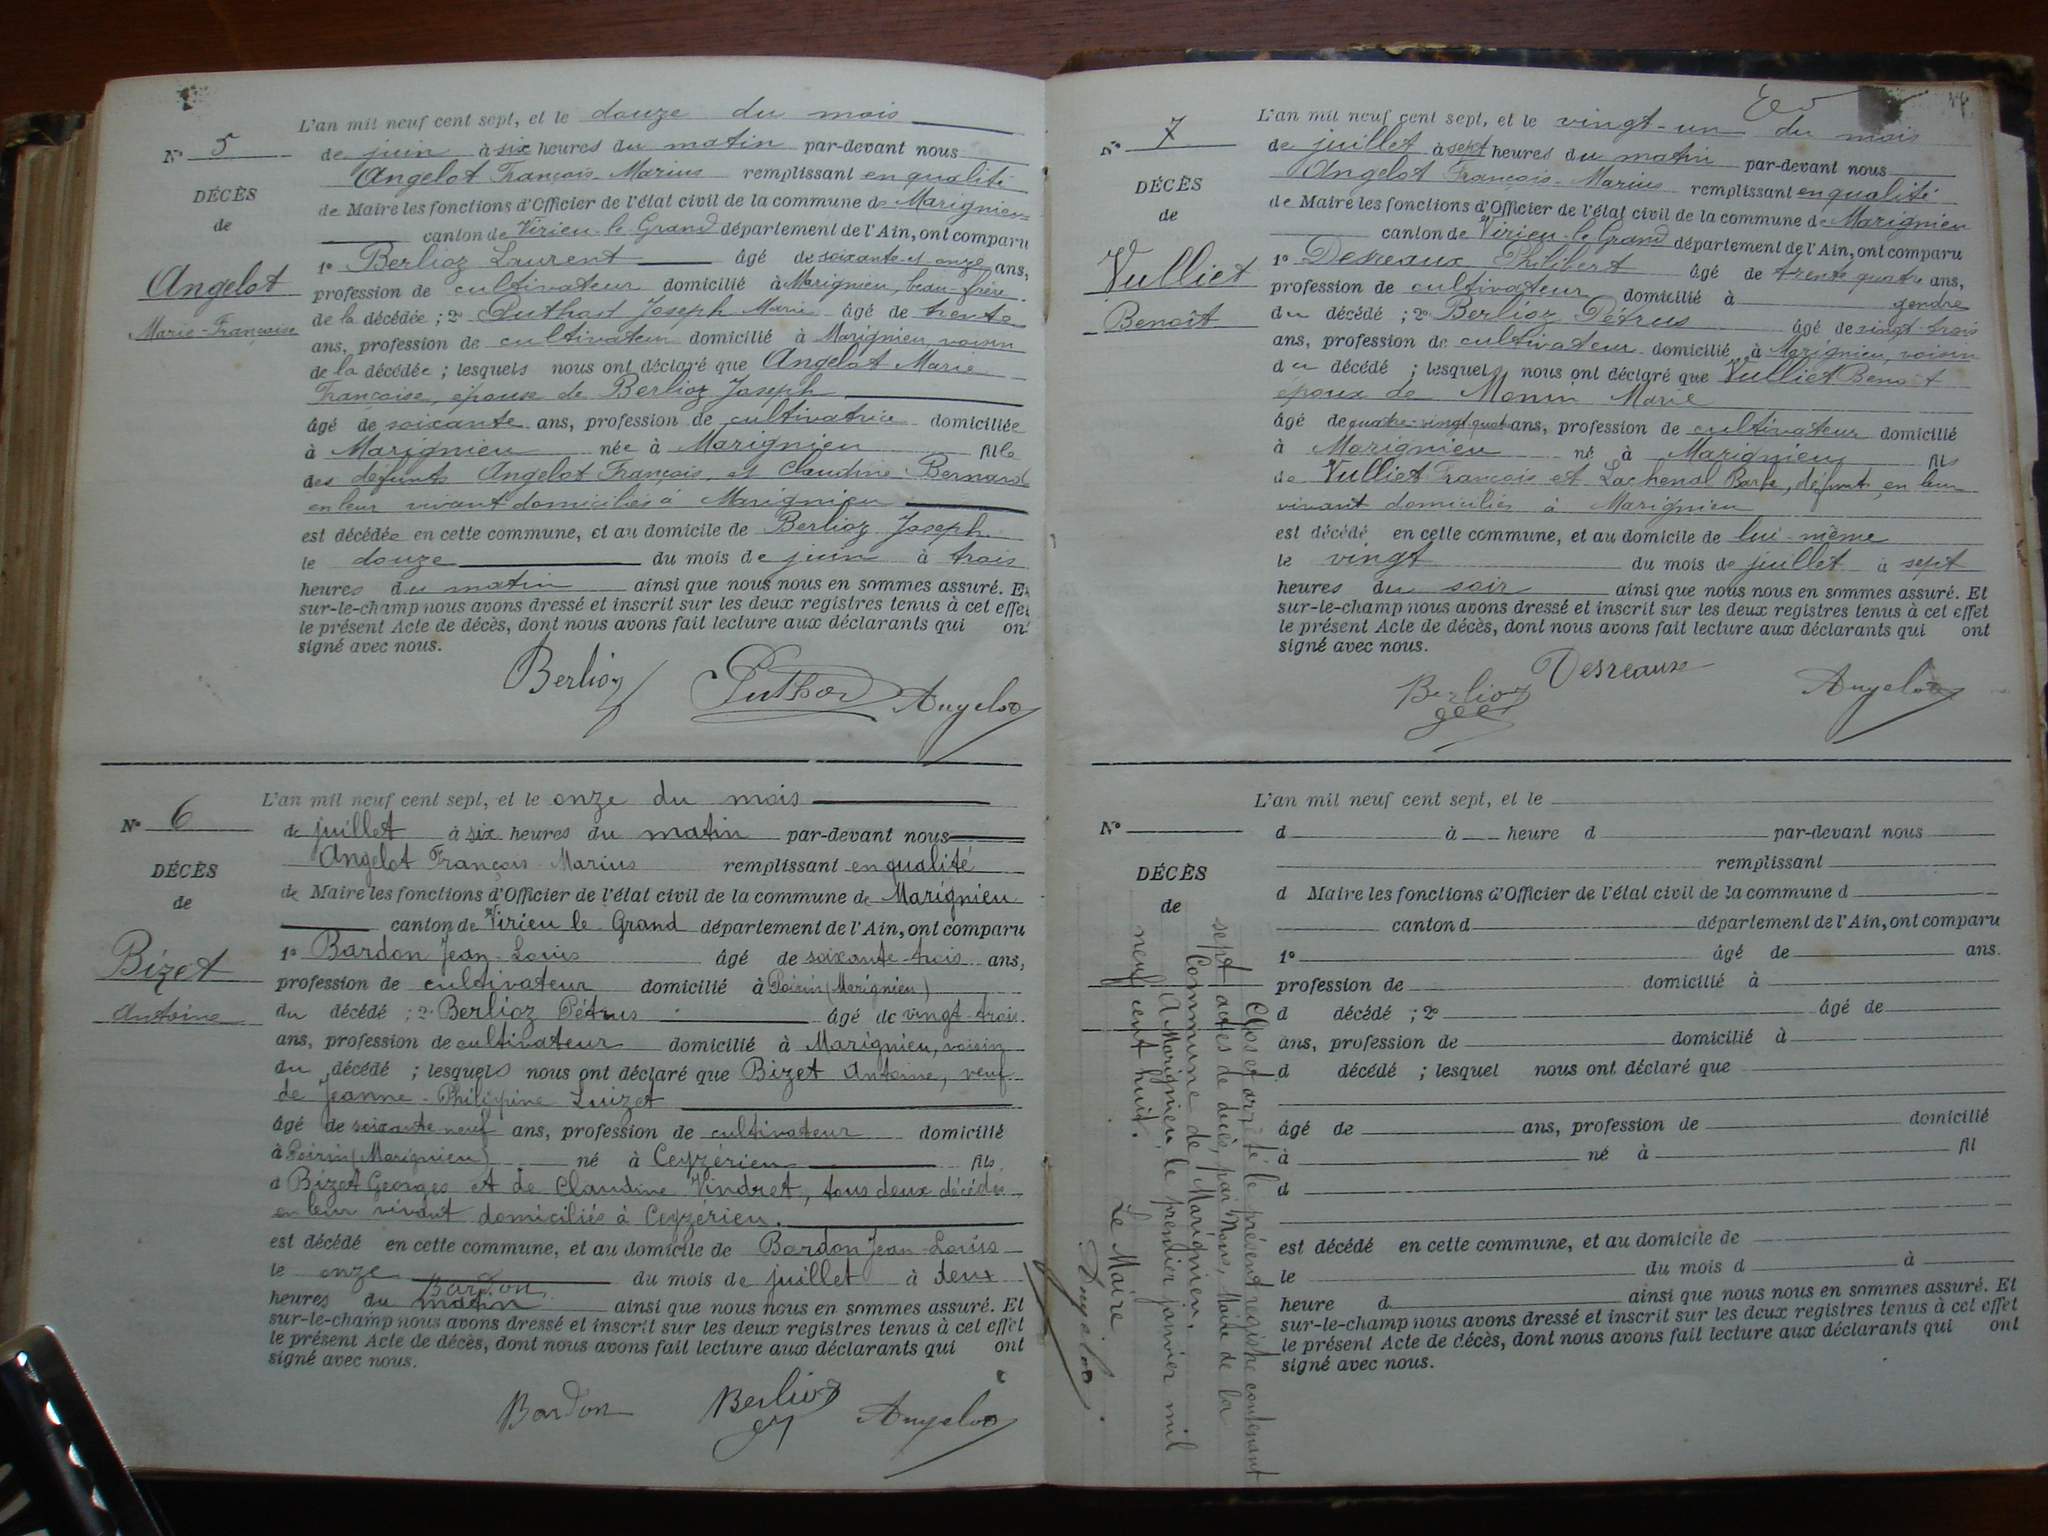 N° 5
DÉCÈS
de
Angelot
Marie-Françoise
L'an mil neuf cent sept, et le douze du mois
de juin à six heures du matin par-devant nous
Angelot François-Marius remplissant en qualité
de Maire les fonctions d'Officier de l'état civil de la commune de Marignieu
canton de Virieu-le-Grand département de l'Ain, ont comparu
1° Berlioz Laurent âgé de soixante et onze ans,
profession de cultivateur domicilié à Marignieu, beau-frère
de la décédée ; 2° Joseph Marie âgé de trente
ans, profession de cultivateur domicilié à Marignieu, voisin
de la décédée ; lesquels nous ont déclaré que Angelot Marie
Françoise, épouse de Berlioz Joseph
âgé de soixante ans, profession de cultivatrice domiciliée
à Marignieu née à Marignieu fille
des défunts Angelot François et Claudine Bernard
en leur vivant domiciliés à Marignieu
est décédée en cette commune, et au domicile de Berlioz Joseph
le douze du mois de juin à trois
heures du matin ainsi que nous nous en sommes assuré. Et
sur-le-champ nous avons dressé et inscrit sur les deux registres tenus à cet effet
le présent Acte de décès, dont nous avons fait lecture aux déclarants qui ont
signé avec nous.
Berlioz Angelot
N° 6
DÉCÈS
de
Bizet
Antoine
L'an mil neuf cent sept, et le onze du mois
de juillet à six heures du matin par-devant nous
Angelot François Marius remplissant en qualité
de Maire les fonctions d'Officier de l'état civil de la commune de Marignieu
canton de Virieu le Grand département de l'Ain, ont comparu
1° Bardon Jean-Louis âgé de soixante-trois ans,
profession de cultivateur domicilié à Poirin (Marignieu)
du décédé ; 2° Berlioz Pétrus âgé de vingt-trois
ans, profession de cultivateur domicilié à Marignieu, voisin
du décédé ; lesquels nous ont déclaré que Bizet Antoine, veuf
de Jeanne-Philippine Luizet
âgé de soixante neuf ans, profession de cultivateur domicilié
à Poirin (Marignieu) né à Ceyzérieu fils
d Bizet Georges et de Claudine Vindret, tous deux décédés
en leur vivant domiciliés à Ceyzérieu.
est décédé en cette commune, et au domicile de Bardon Jean-Louis
le onze du mois de juillet à deux
Bardon
heures du matin ainsi que nous nous en sommes assuré. Et
sur-le-champ nous avons dressé et inscrit sur les deux registres tenus à cet effet
le présent Acte de décès, dont nous avons fait lecture aux déclarants qui ont
signé avec nous.
Bardon Berlioz Angelot
N° 7
DÉCÈS
de
Vulliet
Benoît
L'an mil neuf cent sept, et le vingt-un du mois
de juillet à sept heures du matin par-devant nous
Angelot François-Marius remplissant en qualité
de Maire les fonctions d'Officier de l'état civil de la commune de Marignieu
canton de Virieu-le-Grand département de l'Ain, ont comparu
1° Desreaux Philibert âgé de trente quatre ans,
profession de cultivateur domicilié à gendre
du décédé ; 2° Berlioz Pétrus âgé de vingt-trois
ans, profession de cultivateur domicilié à Marignieu, voisin
du décédé ; lesquels nous ont déclaré que Vulliet Benoît
époux de Monin Marie
âgé de quatre-vingt-quatre ans, profession de cultivateur domicilié
à Marignieu né à Marignieu fils
de Vulliet François et Lachenal Barbe, défunts en leur
vivant domiciliés à Marignieu
est décédé en cette commune, et au domicile de lui-même
le vingt du mois de juillet à sept
heures du soir ainsi que nous nous en sommes assuré. Et
sur-le-champ nous avons dressé et inscrit sur les deux registres tenus à cet effet
le présent Acte de décès, dont nous avons fait lecture aux déclarants qui ont
signé avec nous.
Berlioz Desreaux Angelot
N°
DÉCÈS
de
L'an mil neuf cent sept, et le
d à heure d par-devant nous
remplissant
d Maire les fonctions d'Officier de l'état civil de la commune d
canton d département de l'Ain, ont comparu
1° âgé de ans.
profession de domicilié à
d décédé ; 2° âgé de
ans, profession de domicilié à
d décédé ; lesquel nous ont déclaré que
âgé de ans, profession de domicilié
à né à fil
d
est décédé en cette commune, et au domicile de
le du mois d à
heure d ainsi que nous nous en sommes assuré. Et
sur-le-champ nous avons dressé et inscrit sur les deux registres tenus à cet effet
le présent Acte de décès, dont nous avons fait lecture aux déclarants qui ont
signé avec nous.
Clos et arrêté le présent registre contenant
sept actes de décès, par Nous, Maire de la
Commune de Marignieu.
A Marignieu, le premier janvier mil
neuf cent huit.
Le Maire
Angelot